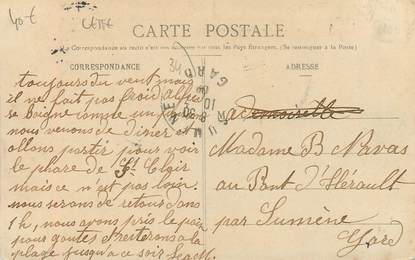 40 €
CETTE
CARTE POSTALE
La Correspondance au recto n'est pas acceptée par tous les Pays Étrangers. (Se renseigner à la Poste)
CORRESPONDANCE
ADRESSE
34
SUMENE
GARD
toujours du vent mais
il ne fait pas froid
se baigne comme un
nous venons de diner et
allons partir pour voir
le phare de St Clair
mais ce n'est pas loin.
nous serons de retour dans
1 h, nous avons pris le pain
pour goûter & resterons à la
plage jusqu'à ce soir
Mademoiselle
Madame B Navas
au Pont d'Hérault
par Sumène
Gard